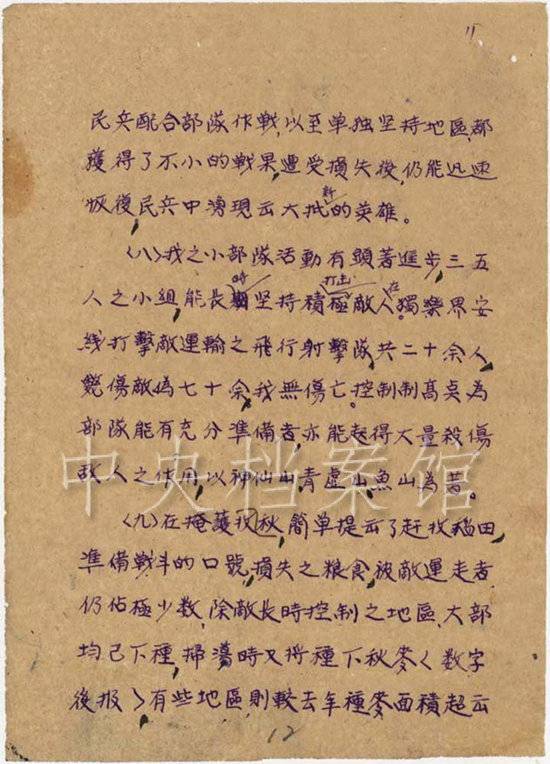 11
民兵配合部隊作战,以至单独坚持地區,都
獲得了不小的战果,遭受損失後,仍能迅速
恢復,民兵中湧現出大批新的英雄。
〈八〉我之小部隊活動有顕著進步,三五
人之小組,能長時坚持積極打击敵人。在獨樂界安
线打擊敵運輸之飛行射擊隊,共二十余人,
斃傷敵偽七十余,我無傷亡。控制制髙奌為
部隊能有充分準備者,亦能起得大量殺傷
敌人之作用,以神仙山,青虚山,魚山為著。
〈九〉在掩護秋收,简单提出了赶收稻田,
準备戦斗的口號,損失之粮食,被敵運走者,
仍佔極少数,除敵長時控制之地區,大部
均已下種,掃蕩時又将種下秋麥〈数字
後报〉有些地區,則較去年種麥面積超出
12
中央档案馆